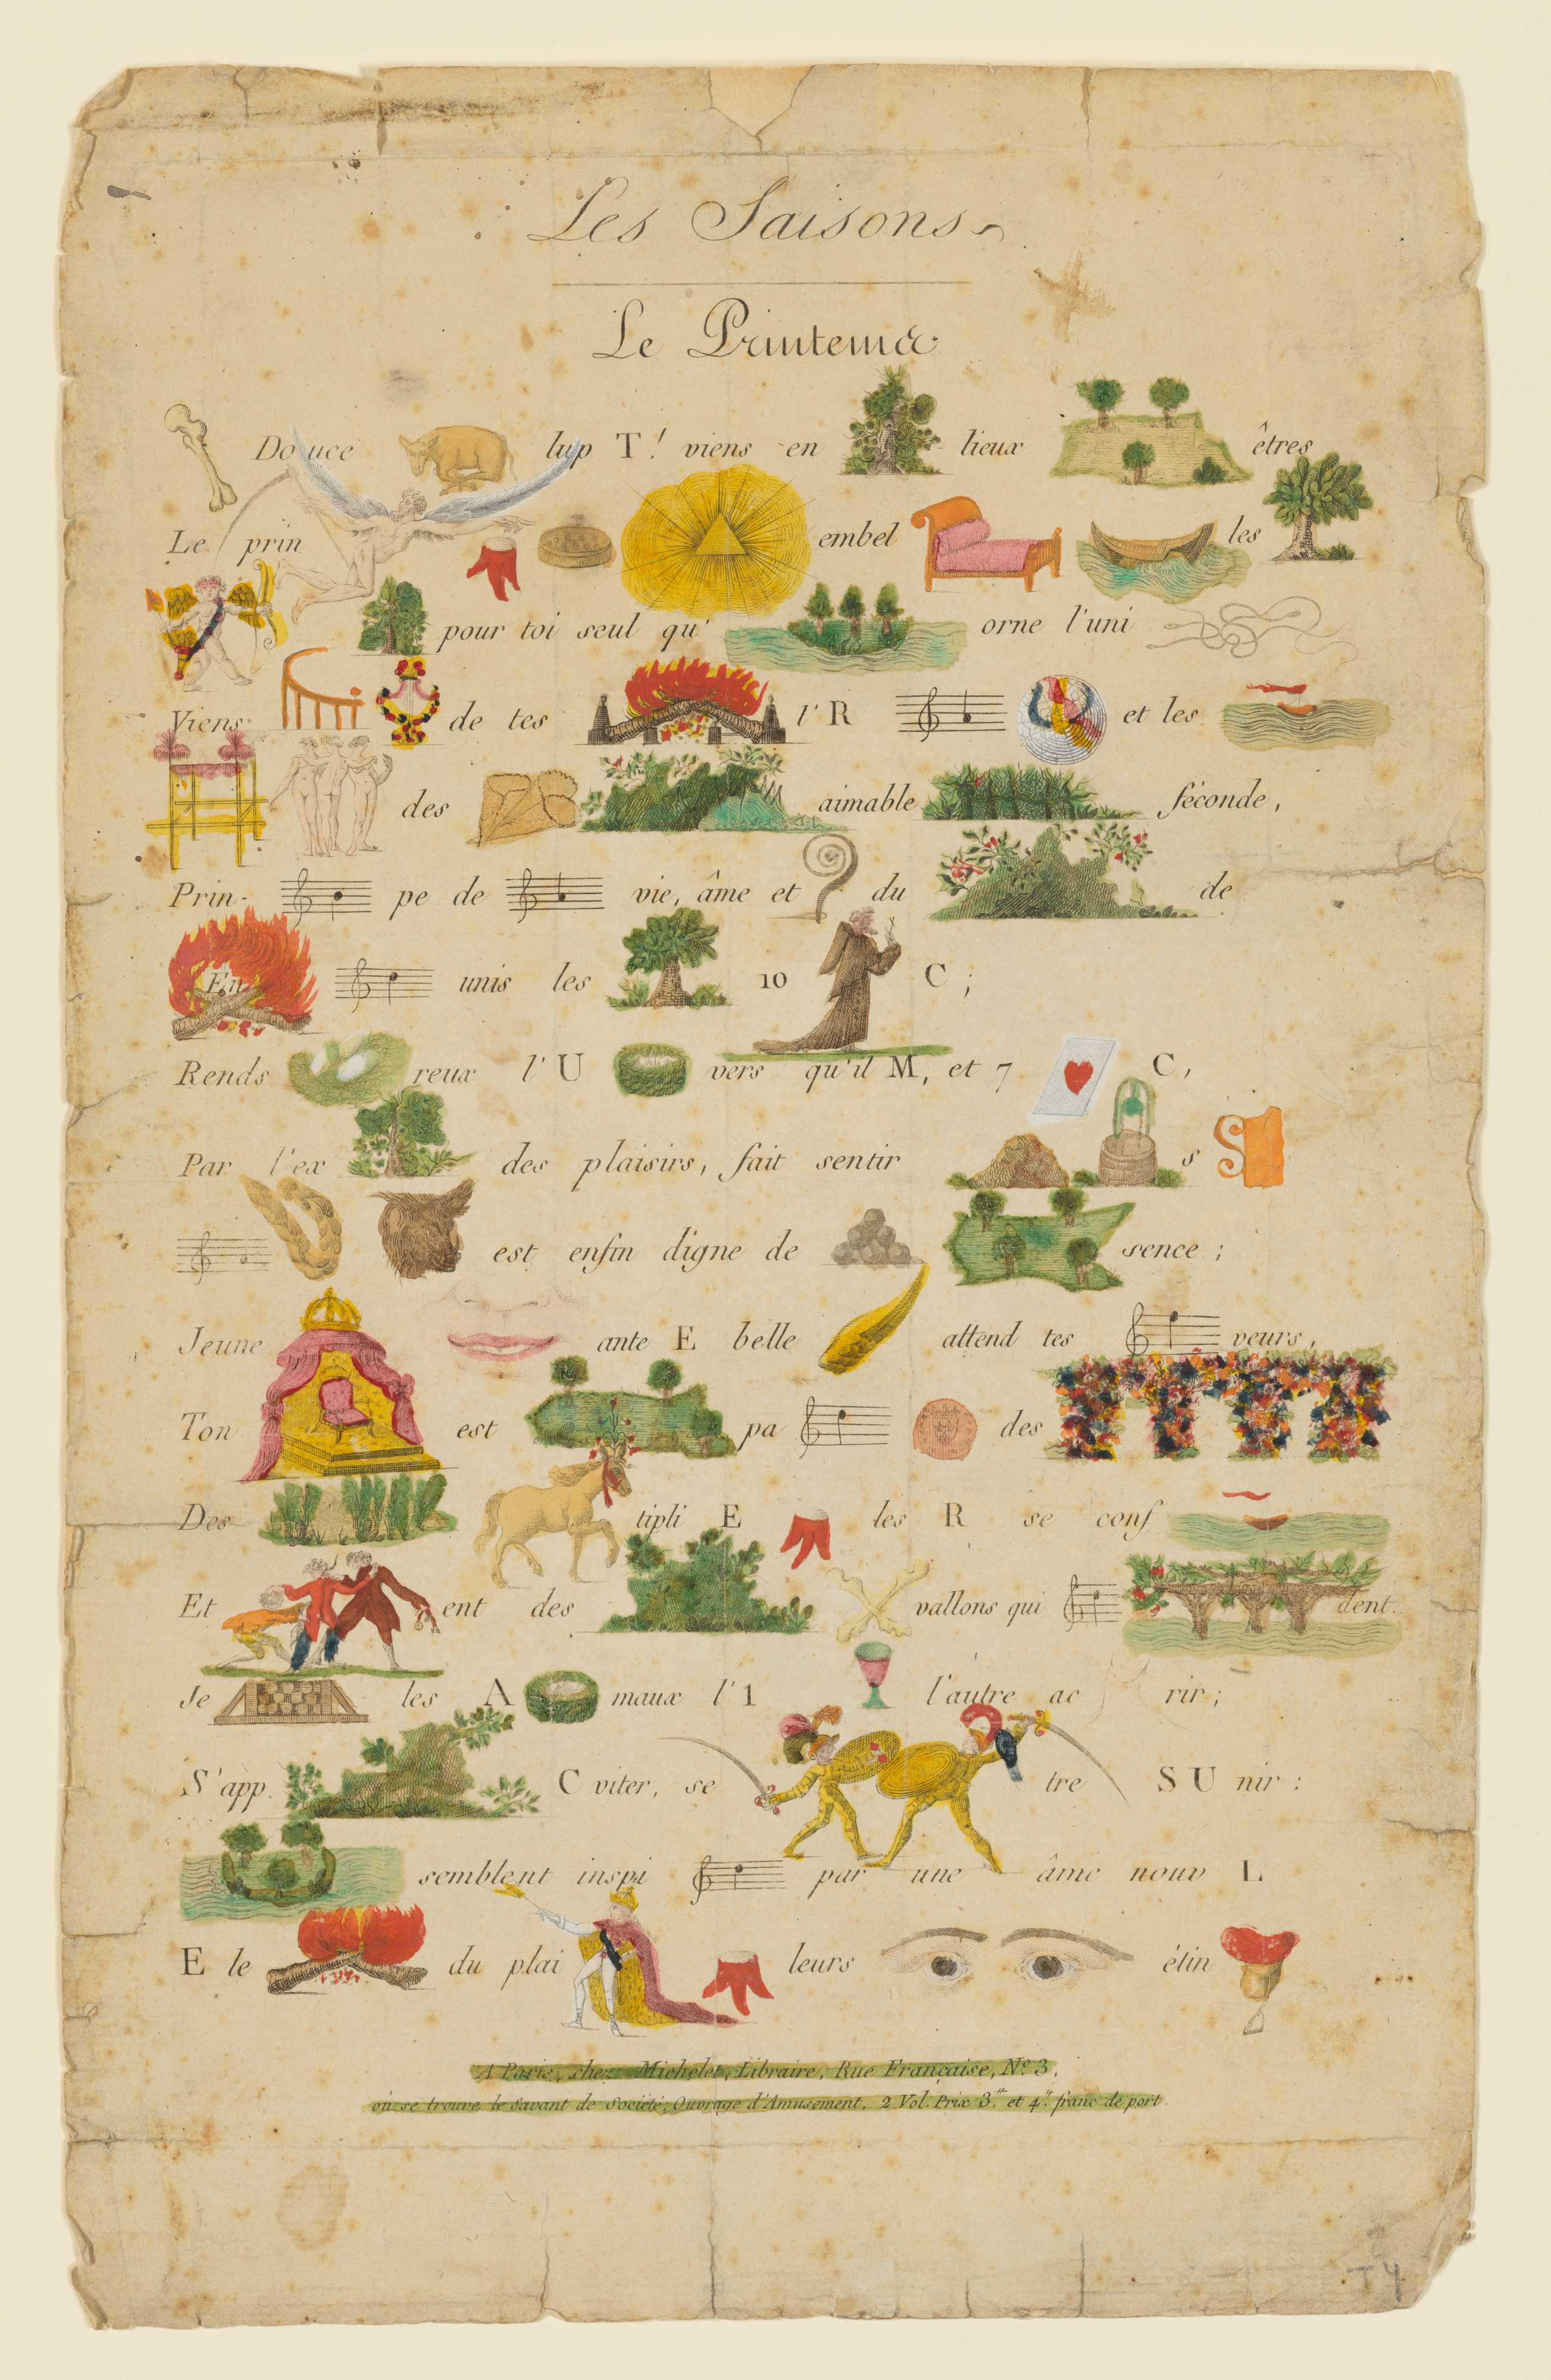 Les Saisons
Le Printems
Douce lup T! viens en lieux êtres
Le prin embel les
pour toi seul qu' orne l'uni
Viens de tes l' R et les
des aimable féconde,
Prin- pe de vie, âme et du de
En unis les 10 C ;
Rends reux l' U vers qu'il M, et 7 C,
Par l'ex des plaisirs, fait sentir s S
est enfin digne de sence ;
Jeune ante E belle attend tes veurs,
Ton est pa des
Des tipli E les R se conf
Et ent des vallons qui dent.
Je les A maux l' 1 l'autre ac rir ;
S'app. C viter, se tre S U nir :
semblent inspi par une âme nouv L
E le du plai leurs étin
A Paris, chez Michelet, Libraire, Rue Française, Nº 3,
où se trouve le Savant de Société; Ouvrage d'Amusement, 2 Vol. Prix 3.tt et 4.tt franc de port.
T4